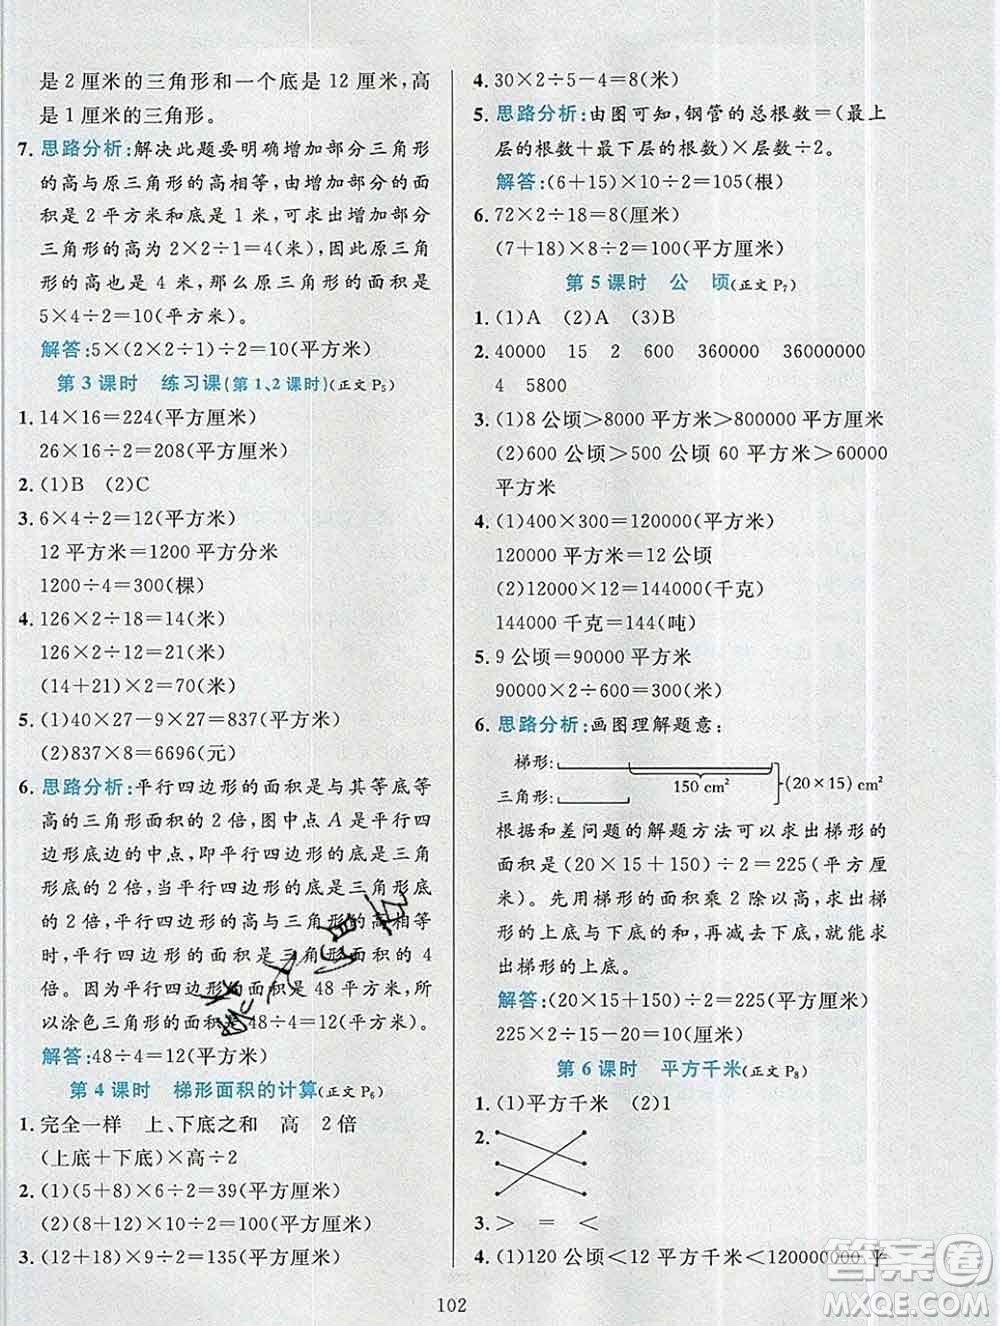 是 2 厘米的三角形和一个底是 12 厘米,高
是 1 厘米的三角形。
7. 思路分析:解决此题要明确增加部分三角形
的高与原三角形的高相等,由增加部分的面
积是 2 平方米和底是 1 米,可求出增加部分
三角形的高为 2×2÷1=4(米),因此原三角
形的高也是 4 米,那么原三角形的面积是
5×4÷2=10(平方米)。
解答:5×(2×2÷1)÷2=10(平方米)
第 3 课时 练习课(第 1、2 课时)(正文 P5)
1. 14×16=224(平方厘米)
26×16÷2=208(平方厘米)
2. (1)B (2)C
3. 6×4÷2=12(平方米)
12 平方米=1200 平方分米
1200÷4=300(棵)
4. 126×2÷18=14(米)
126×2÷12=21(米)
(14+21)×2=70(米)
5. (1)40×27-9×27=837(平方米)
(2)837×8=6696(元)
6. 思路分析:平行四边形的面积是与其等底等
高的三角形面积的 2 倍,图中点 A 是平行四
边形底边的中点,即平行四边形的底是三角
形底的 2 倍,当平行四边形的底是三角形底
的 2 倍,平行四边形的高与三角形的高相等
时,平行四边形的面积是三角形面积的 4
倍。因为平行四边形的面积是 48 平方米,所
以涂色三角形的面积是 48÷4=12(平方米)。
解答:48÷4=12(平方米)
第 4 课时 梯形面积的计算(正文 P6)
1. 完全一样 上、下底之和 高 2 倍
(上底+下底)×高÷2
2. (1)(5+8)×6÷2=39(平方厘米)
(2)(8+12)×10÷2=100(平方厘米)
3. (12+18)×9÷2=135(平方厘米)
4. 30×2÷5-4=8(米)
5. 思路分析:由图可知,钢管的总根数=(最上
层的根数+最下层的根数)×层数÷2。
解答:(6+15)×10÷2=105(根)
6. 72×2÷18=8(厘米)
(7+18)×8÷2=100(平方厘米)
第 5 课时 公 顷(正文 P7)
1. (1)A (2)A (3)B
2. 40000 15 2 600 360000 36000000
4 5800
3. (1)8 公顷>8000 平方米>800000 平方厘米
(2)600 公顷>500 公顷 60 平方米>60000
平方米
4. (1)400×300=120000(平方米)
120000 平方米=12 公顷
(2)12000×12=144000(千克)
144000 千克=144(吨)
5. 9 公顷=90000 平方米
90000×2÷600=300(米)
6. 思路分析:画图理解题意:
梯形:
150 cm²
(20×15) cm²
三角形:
根据和差问题的解题方法可以求出梯形的
面积是(20×15+150)÷2=225(平方厘
米)。先用梯形的面积乘 2 除以高,求出梯形
的上底与下底的和,再减去下底,就能求
出梯形的上底。
解答:(20×15+150)÷2=225(平方厘米)
225×2÷15-20=10(厘米)
第 6 课时 平方千米(正文 P8)
1. (1)平方千米 (2)1
2.
3. > = <
4. (1)120 公顷<12 平方千米<120000000 平
102
答案圈
MXQE.COM